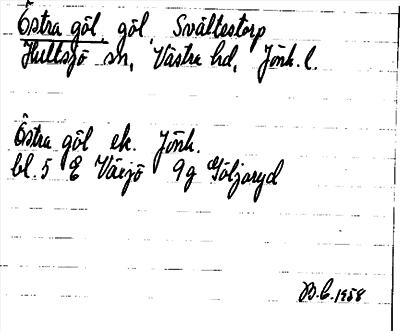 Östra göl, göl, Svältestorp
Hultsjö sn, Västra hd, Jönk. l.
Östra göl ek. Jönk.
bl. 5 E Växjö 9g Göljaryd
B.C. 1958